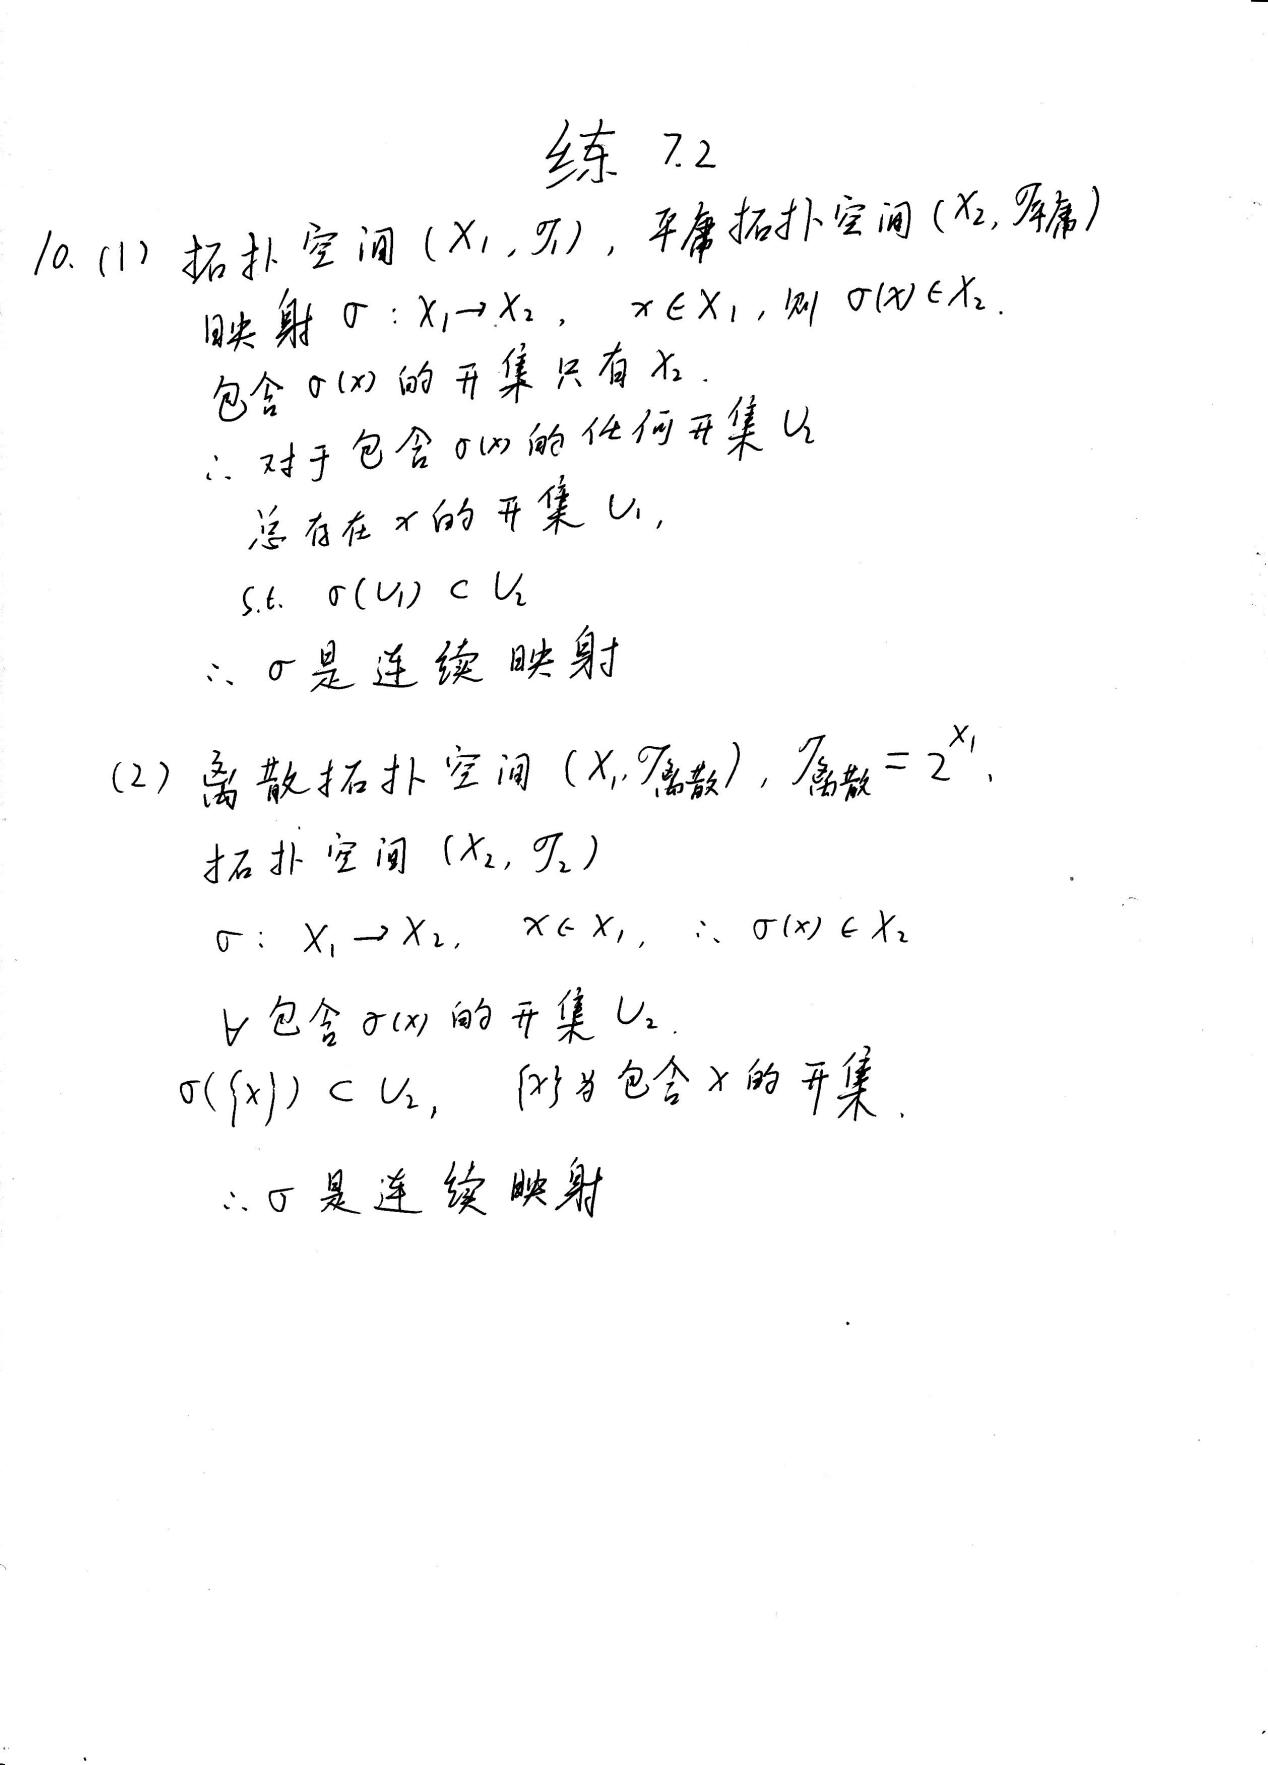 练 7.2
10. (1) 拓扑空间 (X₁, 𝒯₁), 平庸拓扑空间 (X₂, 𝒯平庸)
映射 σ : X₁→X₂, x∈X₁, 则 σ(x)∈X₂.
包含 σ(x) 的开集只有 X₂.
∴ 对于包含 σ(x) 的任何开集 U₂
总存在 x 的开集 U₁,
s.t. σ(U₁) ⊂ U₂
∴ σ 是连续映射
(2) 离散拓扑空间 (X₁, 𝒯离散), 𝒯离散 = 2^X₁,
拓扑空间 (X₂, 𝒯₂)
σ: X₁→X₂, x∈X₁, ∴ σ(x)∈X₂
∀包含 σ(x) 的开集 U₂.
σ({x}) ⊂ U₂, {x}为包含 x 的开集.
∴ σ 是连续映射